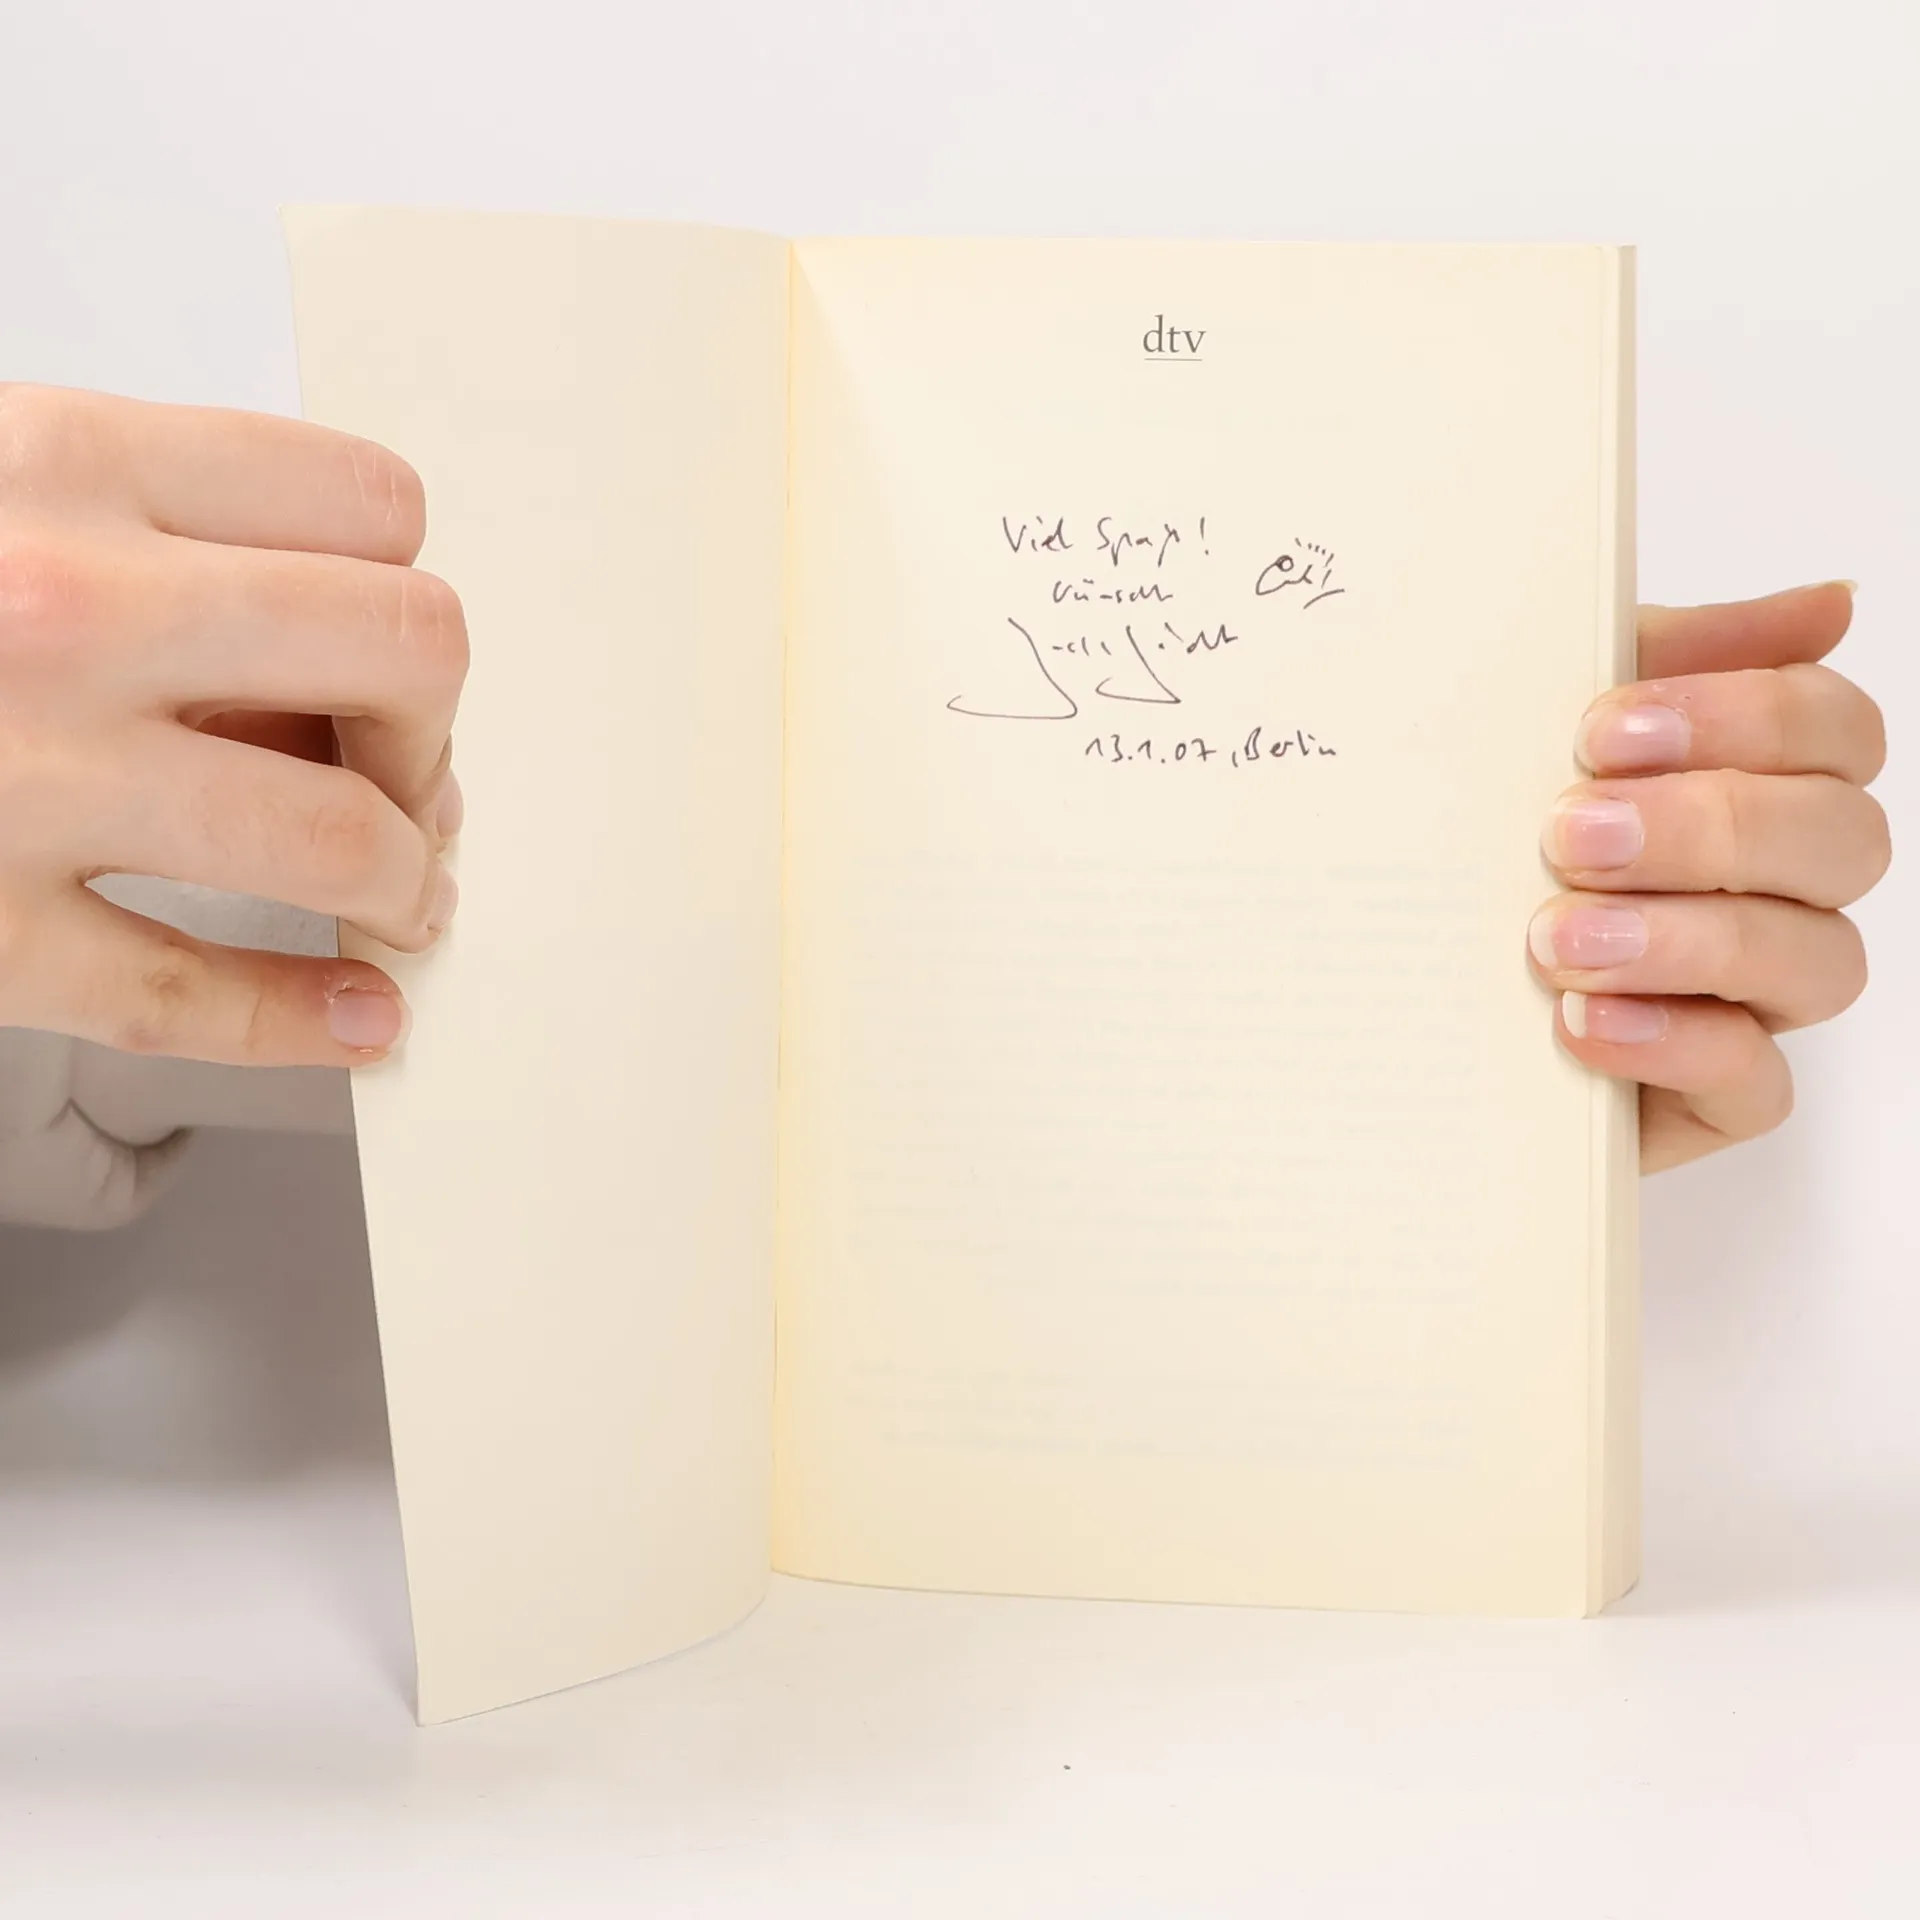 dtv
Viel Spaß!
wünscht
13.1.07, Berlin